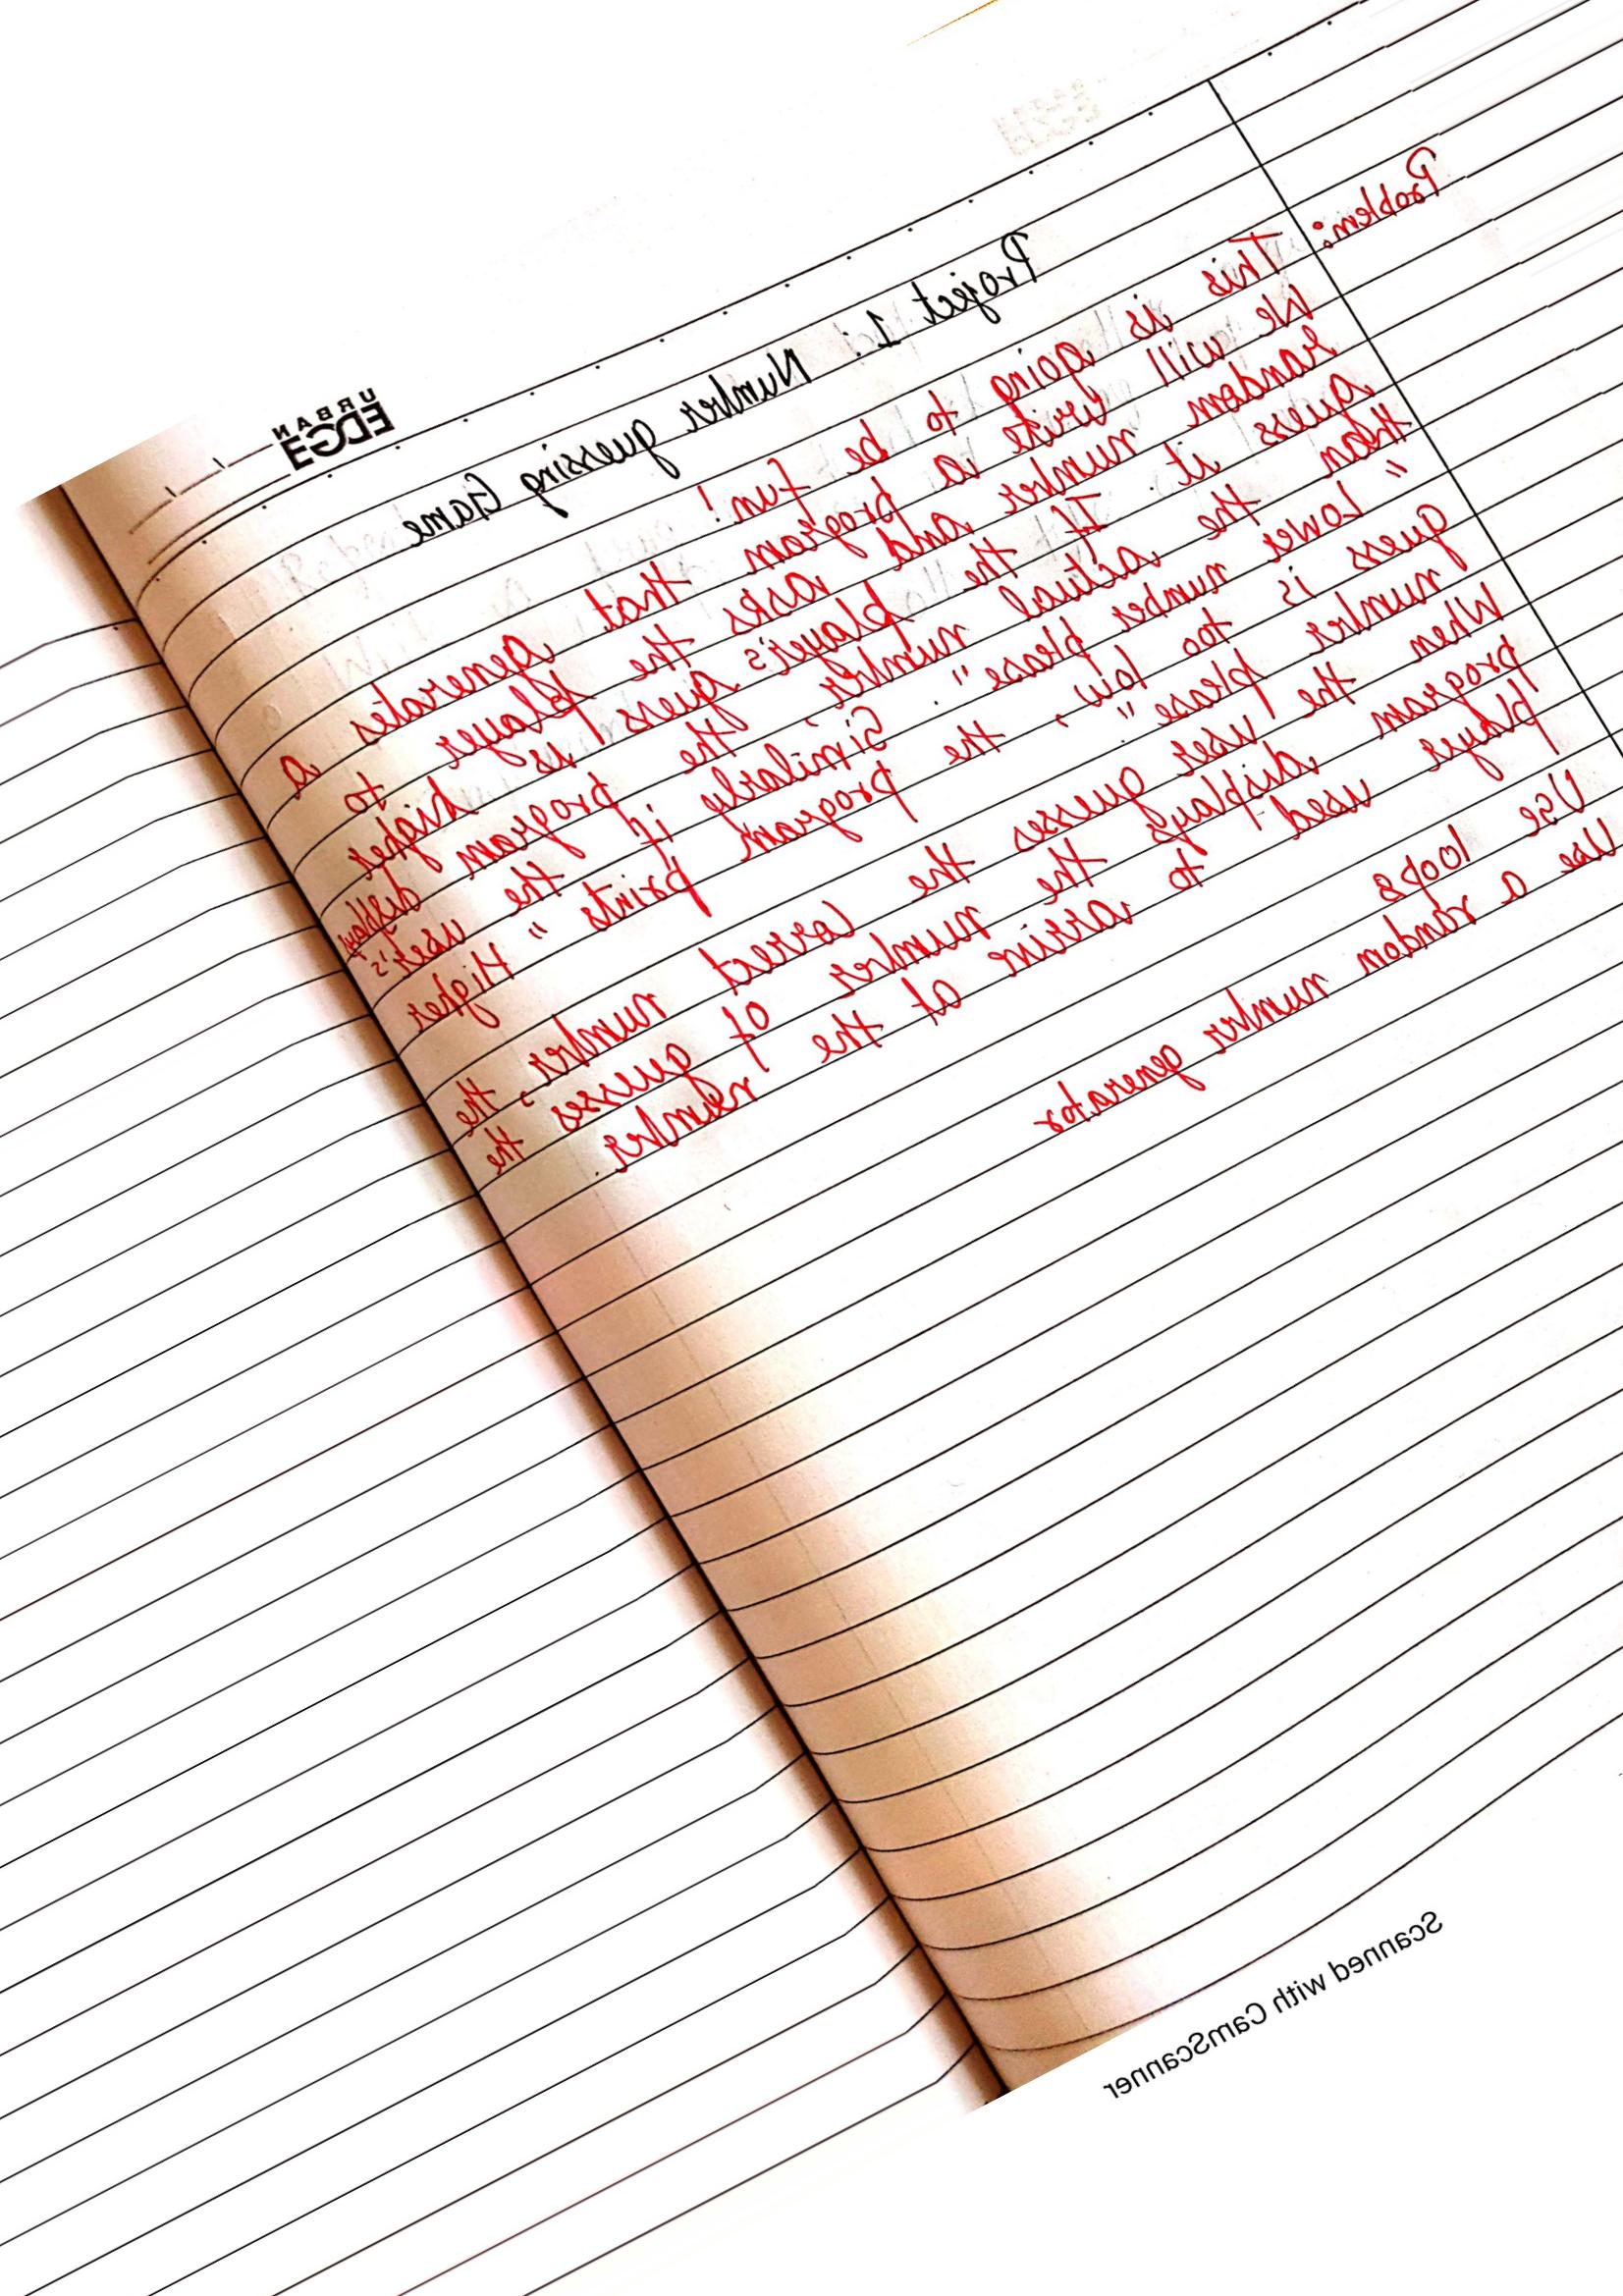 URBAN
EDGE
Project 1: Number guessing Game
Problem:
This is going to be fun!
We will write a program that generates a
random number and asks the player to
guess it. If the player's guess is higher
than the actual number, the program displays
"Lower number please". Similarly if the user's
guess is too low, the program prints "Higher
number please".
When the user guesses the correct number, the
program displays the number of guesses the
player used to arrive at the number.
Use loops
Use a random number generator
Scanned with CamScanner